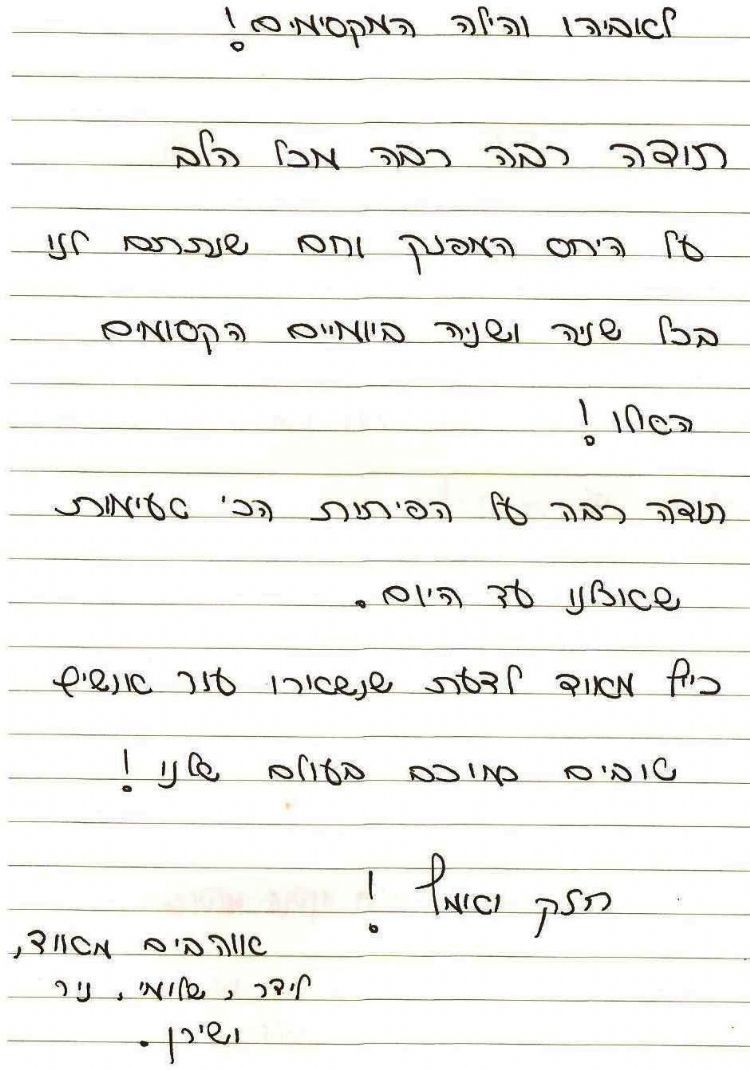 לאביהו והילה המקסימים!
תודה רבה רבה מכל הלב
על היחס המפנק וחם שנתתם לנו
בכל שניה ושניה ביומיים הקסומים
האלו!
תודה רבה על הפיתות הכי טעימות
שאכלנו עד היום.
כיף מאוד לדעת שנשארו עוד אנשים
טובים כמוכם בעולם שלנו!
חזק ואמץ!
אוהבים מאווד,
לידר, שלומי, ניר
ושירן.